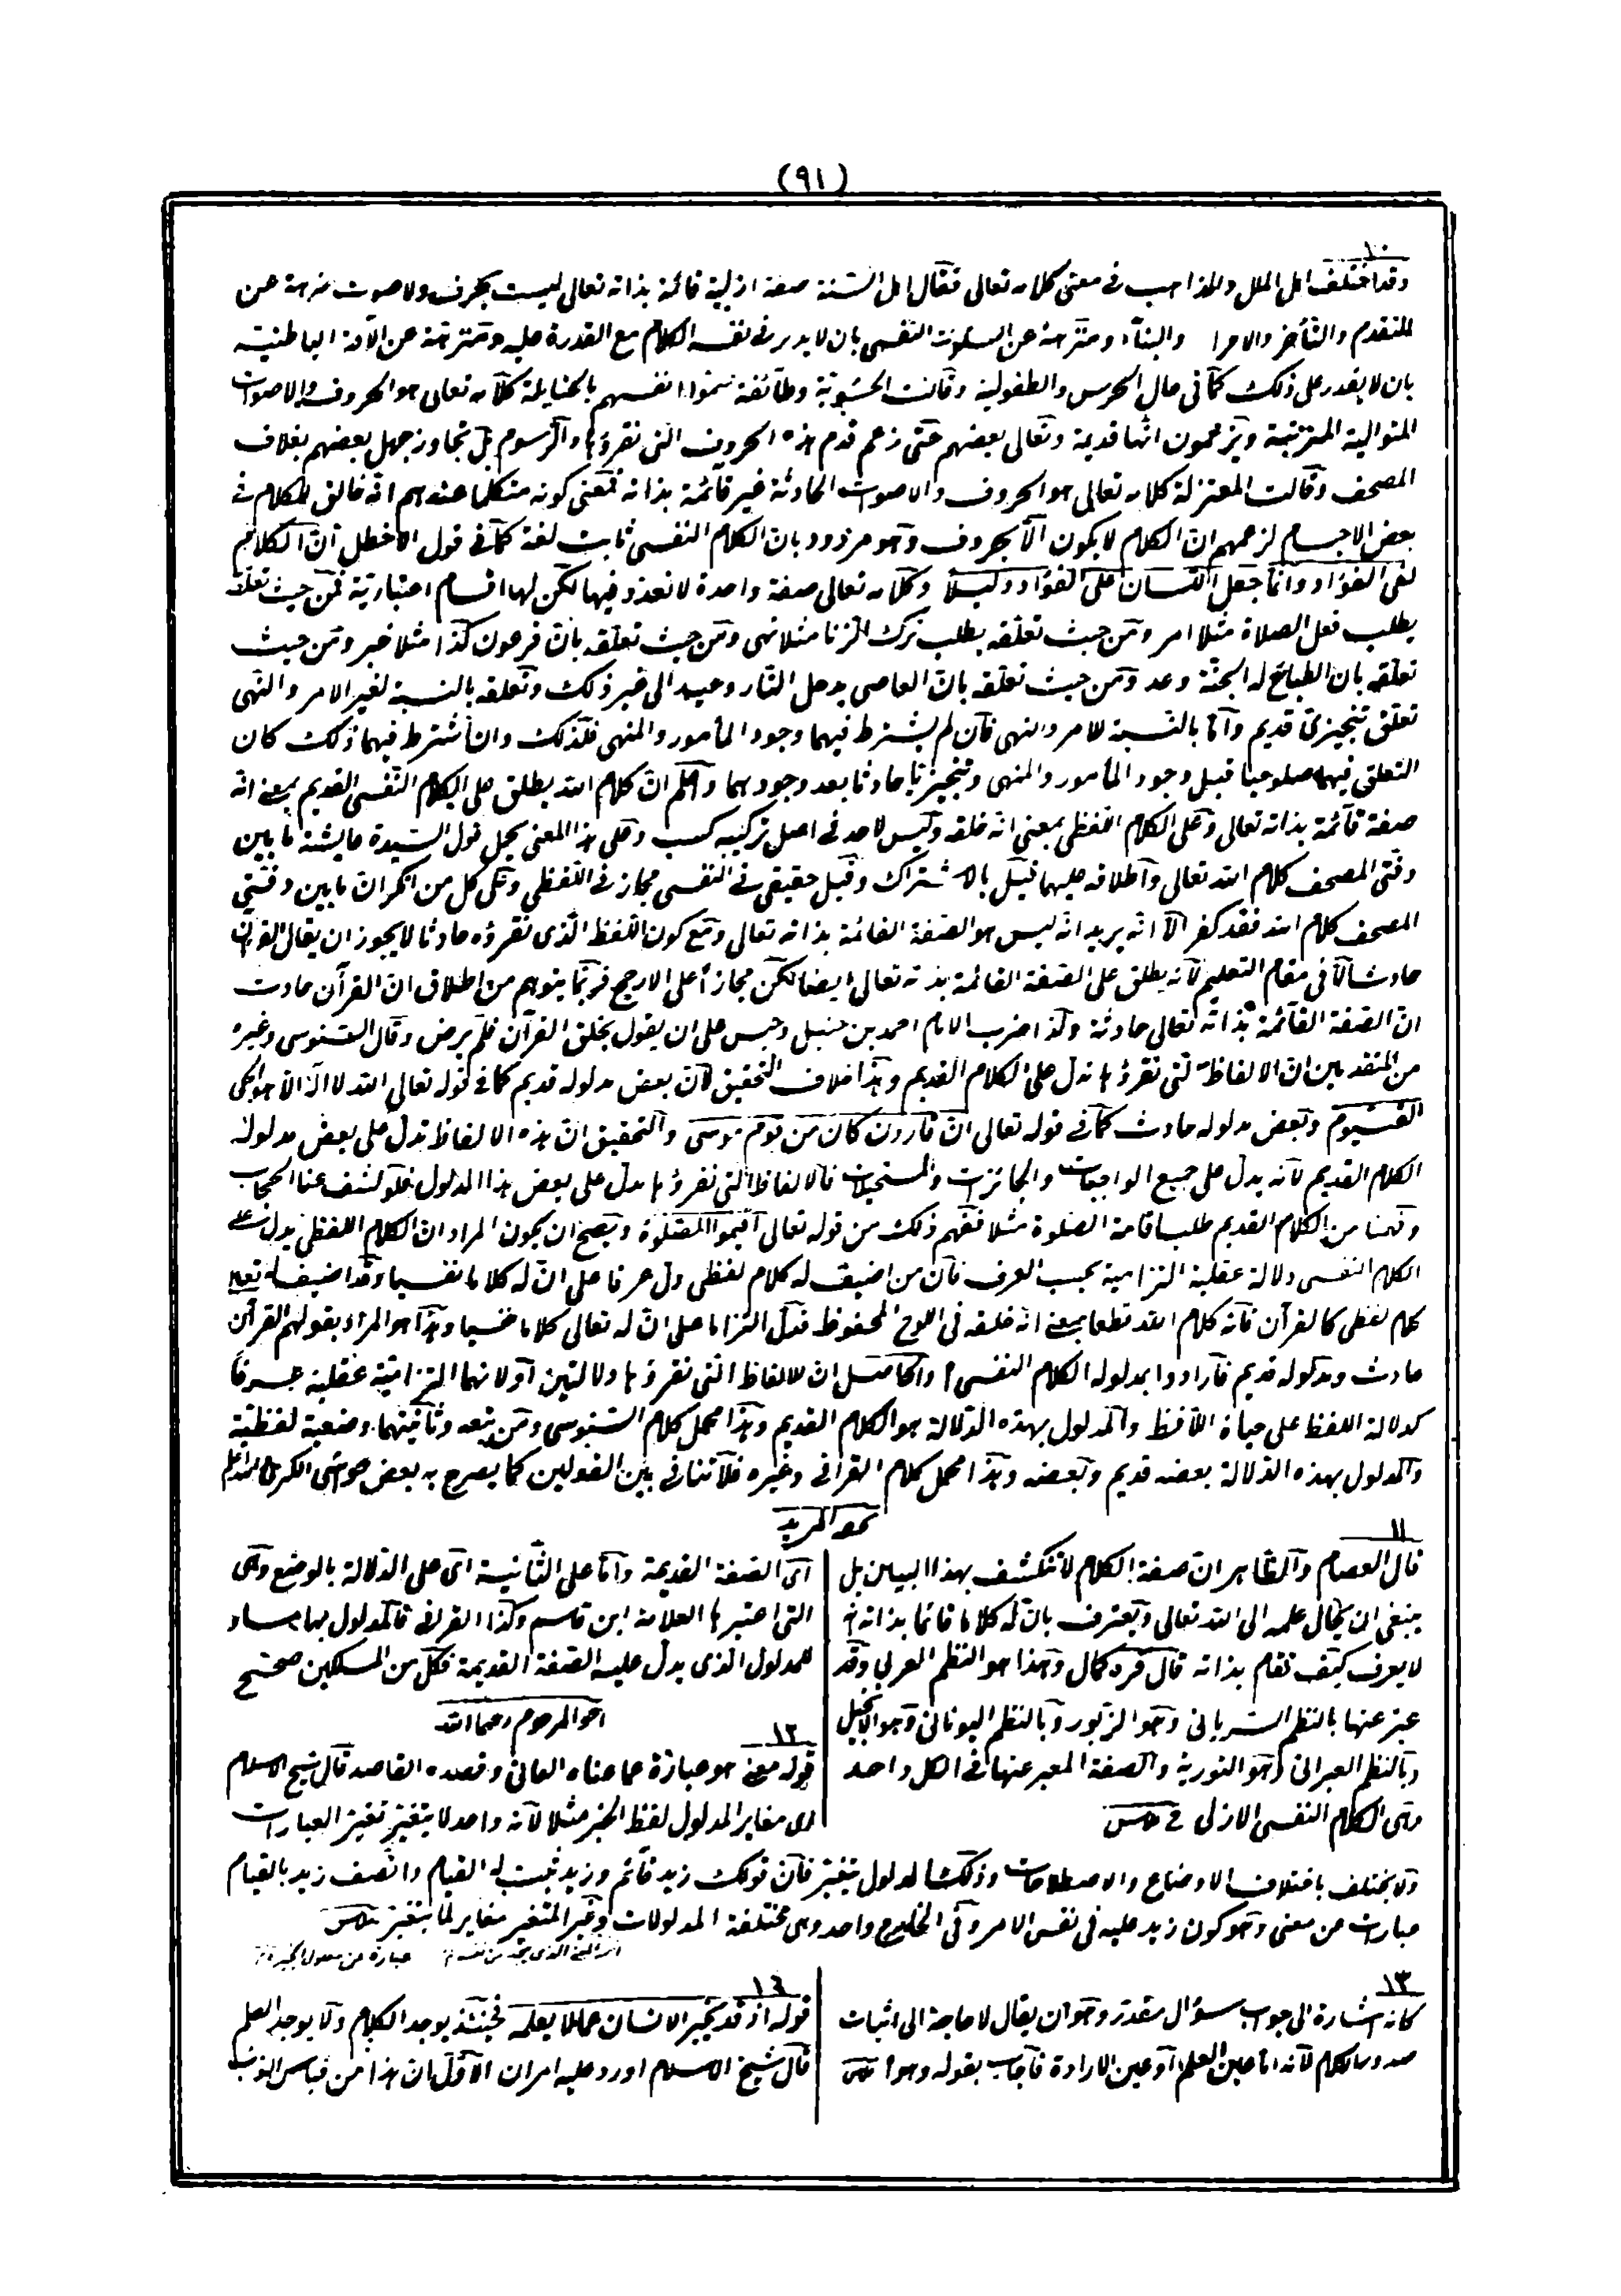 (٩١)
١٠
وقد اختلف اهل الملل والمذاهب فى معنى كلامه تعالى فقال اهل السنة صفة ازلية قائمة بذاته تعالى ليست بحرف ولا صوت منزهة عن
المتقدم والتأخر والاعراب والبناء ومنزهة عن السكوت النفسى بان لا يدبر فى نفسه الكلام مع القدرة عليه ومنزهة عن الآفة الباطنية
بان لا يقدر على ذلك كما فى حال الخرس والطفولية وقالت الحشوية وطائفة سموا انفسهم بالحنابلة كلامه تعالى هو الحروف والاصوات
المتوالية المترتبة ويزعمون انها قديمة وتغالى بعضهم حتى زعم قدم هذه الحروف التى نقرؤها والرسوم بل تجاوز جهل بعضهم بغلاف
المصحف وقالت المعتزلة كلامه تعالى هو الحروف والاصوات الحادثة غير قائمة بذاته فمعنى كونه متكلما عندهم انه خالق للكلام فى
بعض الاجسام لزعمهم ان الكلام لا يكون الا بحروف وهو مردود بان الكلام النفسى ثابت لغة كما فى قول الاخطل ان الكلام
لفى الفؤاد وانما جعل اللسان على الفؤاد دليلا وكلامه تعالى صفة واحدة لا تعدد فيها لكن لها اقسام اعتبارية فمن حيث تعلقه
بطلب فعل الصلاة مثلا امر ومن حيث تعلقه بطلب ترك الزنا مثلا نهى ومن حيث تعلقه بان فرعون كذا مثلا خبر ومن حيث
تعلقه بان الطائع له الجنة وعد ومن حيث تعلقه بان العاصى يدخل النار وعيد الى غير ذلك وتعلقه بالنسبة لغير الامر والنهى
تعلق تنجيزى قديم واما بالنسبة للامر والنهى فان لم يشترط فيهما وجود المأمور والمنهى فكذلك وان اشترط فيهما ذلك كان
التعلق فيهما صلوحيا قبل وجود المأمور والمنهى وتنجيزيا حادثا بعد وجودهما واعلم ان كلام الله يطلق على الكلام النفسى القديم بمعنى انه
صفة قائمة بذاته تعالى وعلى الكلام اللفظى بمعنى انه خلقه وليس لاحد فى اصل تركيبه كسب وعلى هذا المعنى يحمل قول السيدة عايشة ما بين
دفتى المصحف كلام الله تعالى واطلاقه عليهما قيل بالاشتراك وقيل حقيقى فى النفسى مجاز فى اللفظى وعلى كل من انكر ان ما بين دفتى
المصحف كلام الله فقد كفر الا انه يريد انه ليس هو الصفة القائمة بذاته تعالى ومع كون اللفظ الذى نقرؤه حادثا لا يجوز ان يقال القرآن
حادث الا فى مقام التعليم لانه يطلق على الصفة القائمة بذاته تعالى ايضا لكن مجازا على الارجح فربما يتوهم من اطلاق ان القرآن حادث
ان الصفة القائمة بذاته تعالى حادثة ولذا ضرب الامام احمد بن حنبل وحبس على ان يقول بخلق القرآن فلم يرض وقال السنوسى وغيره
من المتقدمين ان الالفاظ التى نقرؤها تدل على الكلام القديم وهذا خلاف التحقيق لان بعض مدلوله قديم كما فى قوله تعالى الله لا اله الا هو الحى
القيوم وبعض مدلوله حادث كما فى قوله تعالى ان قارون كان من قوم موسى والتحقيق ان هذه الالفاظ تدل على بعض مدلول
الكلام القديم لانه يدل على جميع الواجبات والجائزات والمستحيلات فالالفاظ التى نقرؤها تدل على بعض هذا المدلول فلو كشف عنا الحجاب
وفهمنا من الكلام القديم طلب اقامة الصلوة مثلا نفهم ذلك من قوله تعالى اقيموا الصلوة ويصح ان يكون المراد ان الكلام اللفظى يدل على
الكلام النفسى دلالة عقلية التزامية بحسب العرف فان من اضيف له كلام لفظى دل عرفا على ان له كلاما نفسيا وقد اضيف له تعالى
كلام لفظى كالقرآن فانه كلام الله قطعا بمعنى انه خلقه فى اللوح المحفوظ فدل التزاما على ان له تعالى كلاما نفسيا وهذا هو المراد بقولهم القرآن
حادث ومدلوله قديم فارادوا بمدلوله الكلام النفسى والحاصل ان للالفاظ التى نقرؤها دلالتين اولاهما التزامية عقلية عرفا
كدلالة اللفظ على حياة اللافظ والمدلول بهذه الدلالة هو الكلام القديم وهذا محمل كلام السنوسى ومن تبعه وثانيتهما وضعية لفظية
والمدلول بهذه الدلالة بعضه قديم وبعضه وهذا محمل كلام القرافى وغيره فلا تنافى بين القولين كما يصرح به بعض حواشى الكبرى
تحفة المريد
١١
قال العصام والظاهر ان صفة الكلام لا تنكشف بهذا البيان بل
ينبغى ان يحال علمه الى الله تعالى ويعترف بان له كلاما قائما بذاته
لا يعرف كيف تقام بذاته قال قره كمال وهذا هو النظم العربى وقد
عبر عنها بالنظم السريانى وهو الزبور وبالنظم اليونانى وهو الانجيل
وبالنظم العبرانى وهو التورية والصفة المعبر عنها فى الكل واحد
وهى الكلام النفسى الازلى
اى الصفة القديمة واما على الثانية اى على الدلالة بالوضع وهى
التى اعتبرها العلامة ابن قاسم وكذا القرافى فالمدلول بها مساو
للمدلول الذى يدل عليه الصفة القديمة فكل من المسلكين صحيح
١٢
قوله معنى هو عبارة عما عناه العانى وقصده القاصد قال شيخ الاسلام
اى مغاير المدلول لفظ الخبر مثلا لانه واحد لا يتغير بتغير العبارات
ولا يختلف باختلاف الاوضاع والاصطلاحات وذلك المدلول يتغير فان قولك زيد قائم وزيد ثبت له القيام واتصف زيد بالقيام
عبارات عن معنى وهو كون زيد عليه فى نفس الامر وفى الخارج واحد وهى مختلفة المدلولات وغير المتغير مغاير لما يتغير
١٣
كانه اشارة الى جواب سؤال مقدر وهو ان يقال لا حاجة الى اثبات
صدور الكلام لانه اما عين العلم او عين الارادة فاجاب بقوله وهو
١٤
قوله اذ قد يخبر الانسان عما لا يعلمه فحينئذ يوجد الكلام ولا يوجد العلم
قال شيخ الاسلام اورد عليه امران الاول ان هذا من قياس الغائب